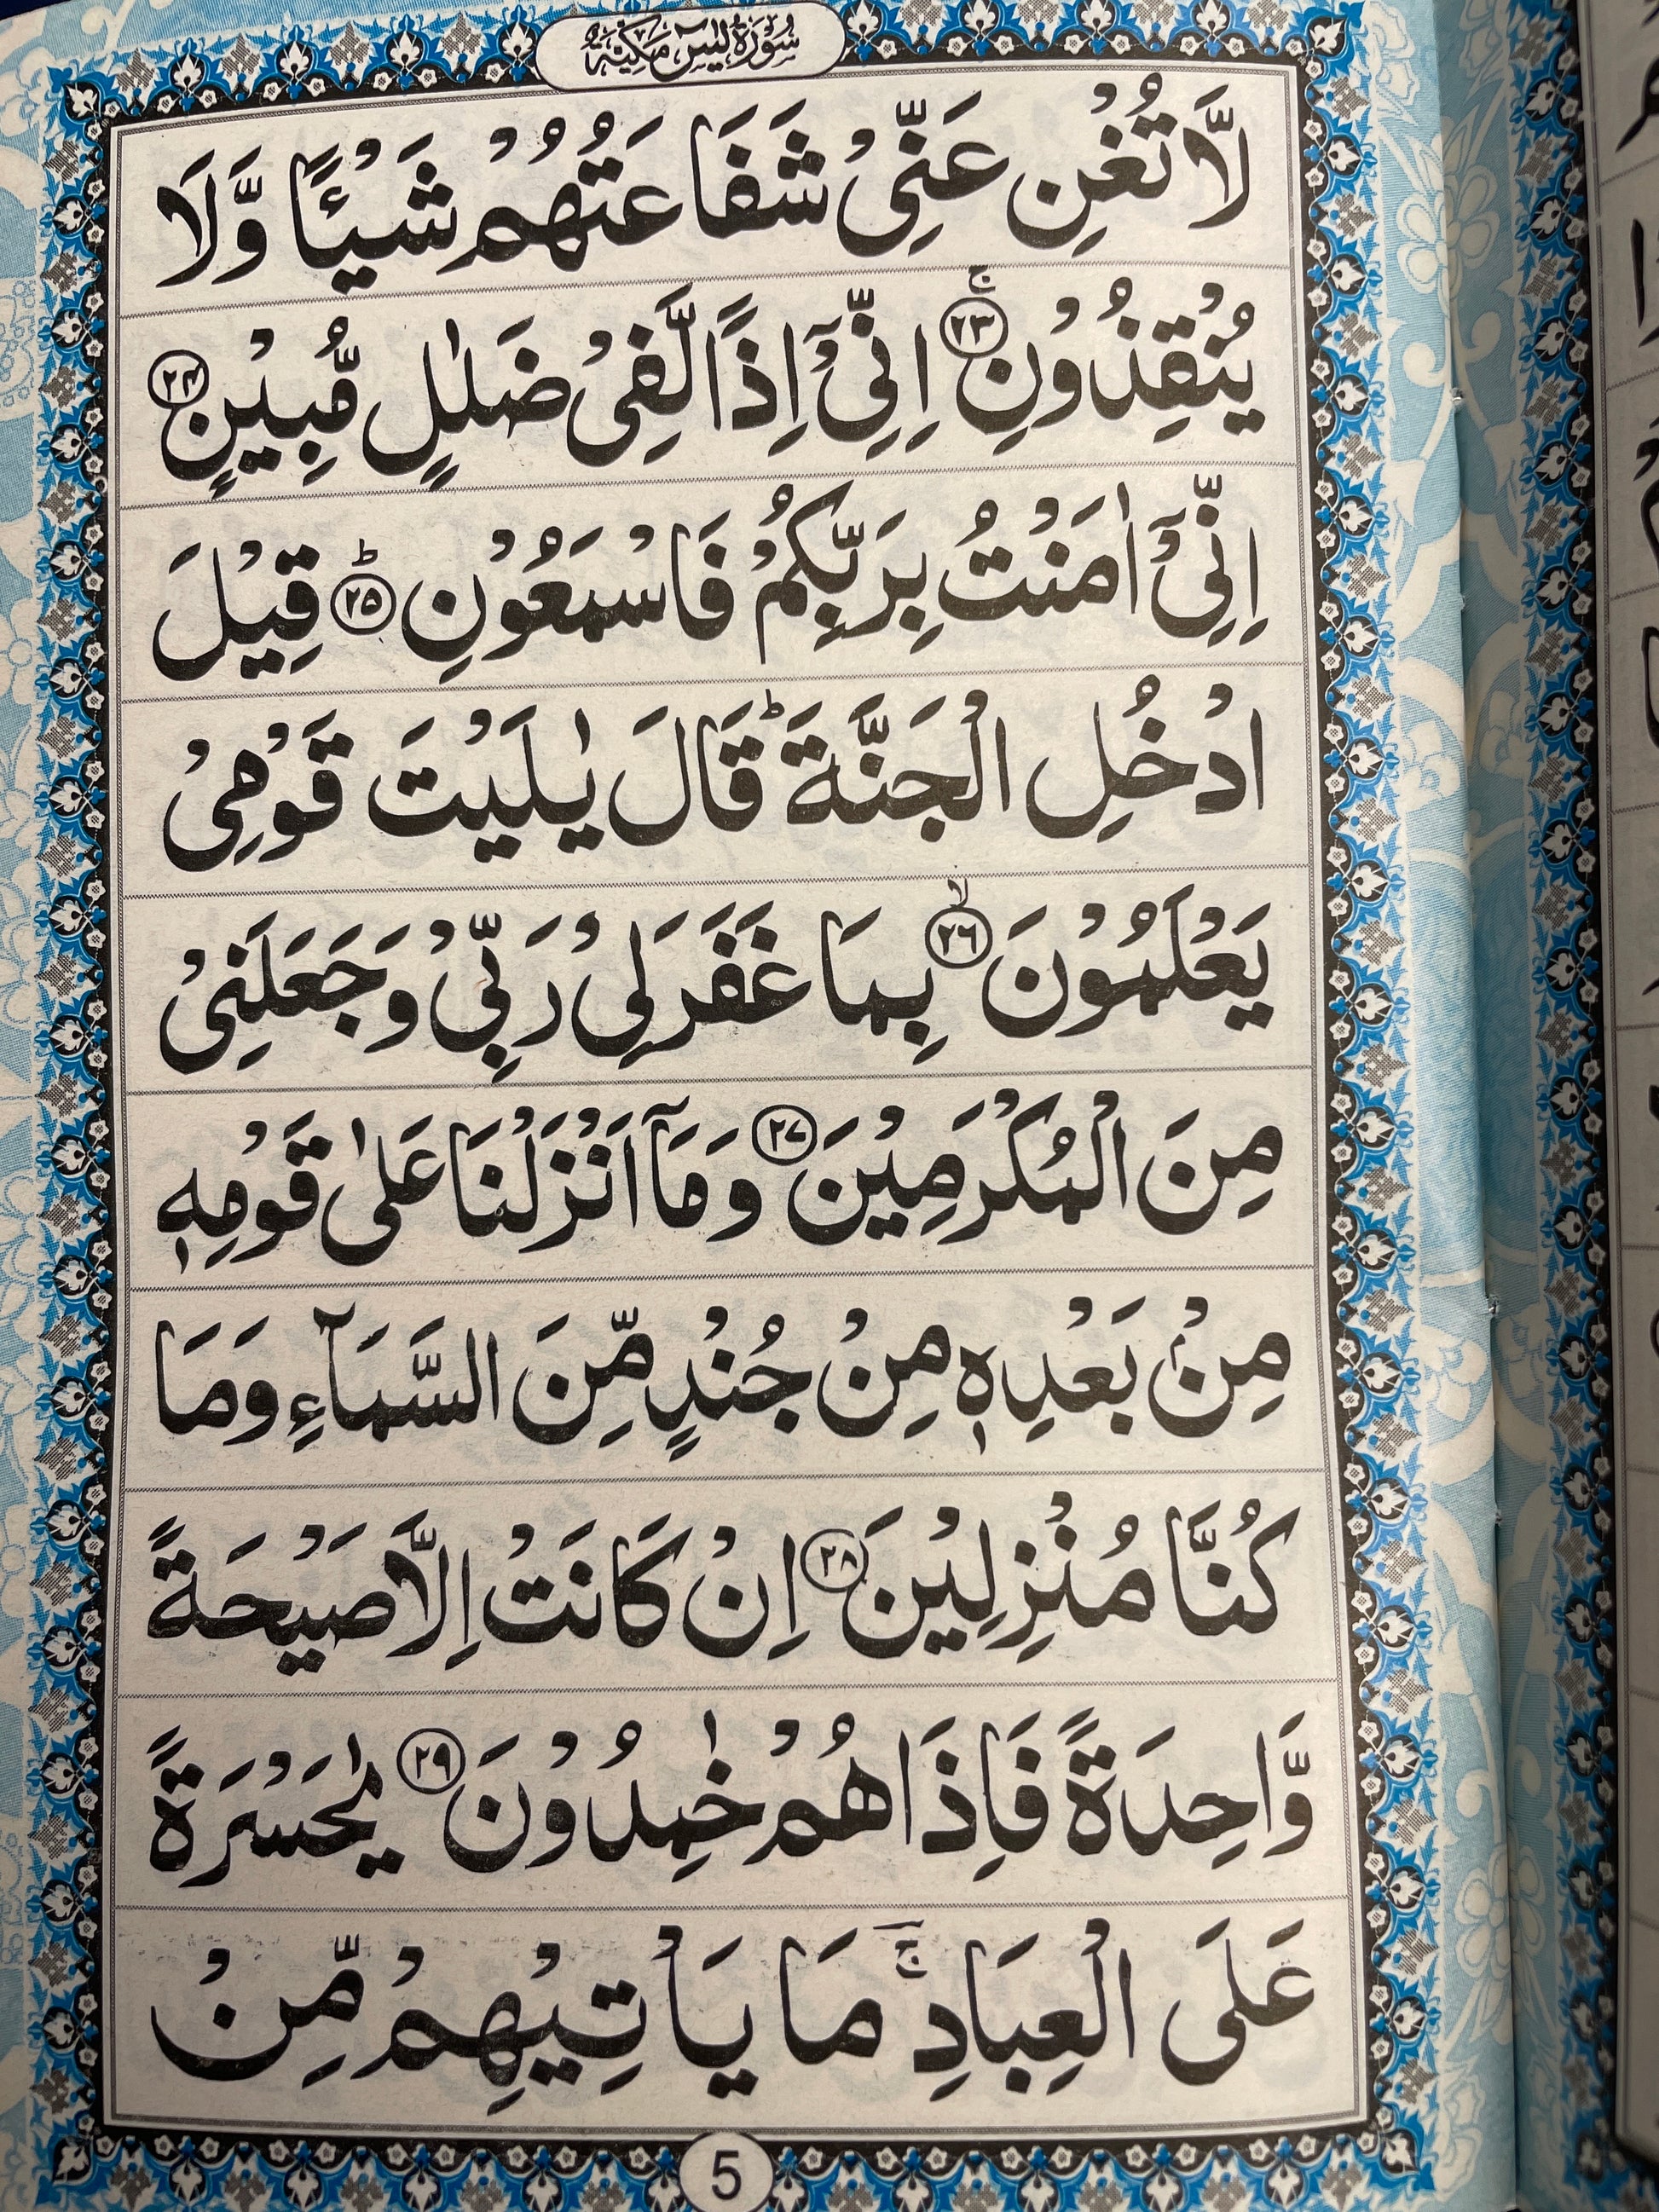 سُوْرَةُ يٰسٓ مَكِّيَّةٌ
لَّا تُغْنِ عَنِّیْ شَفَاعَتُهُمْ شَیْـًٔا وَّلَا
یُنْقِذُوْنِ ۚ﴿۲۳﴾ اِنِّیْۤ اِذًا لَّفِیْ ضَلٰلٍ مُّبِیْنٍ ﴿۲۴﴾
اِنِّیْۤ اٰمَنْتُ بِرَبِّكُمْ فَاسْمَعُوْنِ ؕ﴿۲۵﴾ قِیْلَ
ادْخُلِ الْجَنَّةَ ؕ قَالَ یٰلَیْتَ قَوْمِیْ
یَعْلَمُوْنَ ۙ﴿۲۶﴾ بِمَا غَفَرَ لِیْ رَبِّیْ وَجَعَلَنِیْ
مِنَ الْمُكْرَمِیْنَ ﴿۲۷﴾ وَمَاۤ اَنْزَلْنَا عَلٰی قَوْمِهٖ
مِنْۢ بَعْدِهٖ مِنْ جُنْدٍ مِّنَ السَّمَآءِ وَمَا
كُنَّا مُنْزِلِیْنَ ﴿۲۸﴾ اِنْ كَانَتْ اِلَّا صَیْحَةً
وَّاحِدَةً فَاِذَا هُمْ خٰمِدُوْنَ ﴿۲۹﴾ یٰحَسْرَةً
عَلَی الْعِبَادِ ۚ مَا یَاْتِیْهِمْ مِّنْ
5